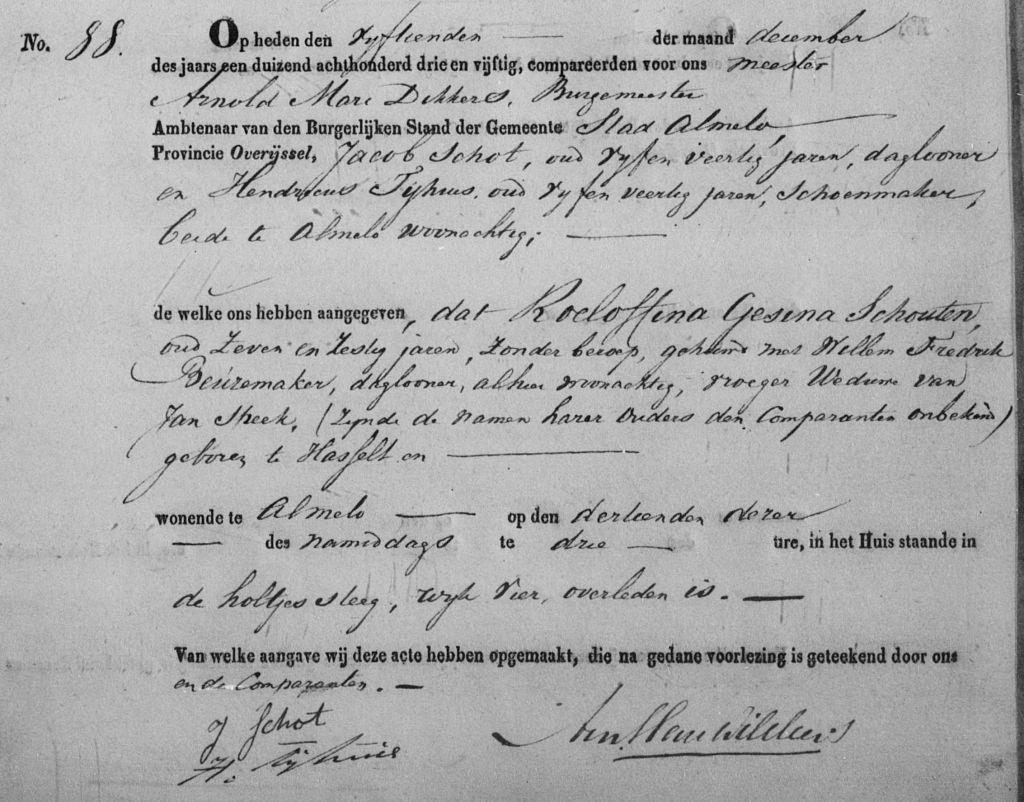 No. 88. Op heden den vyftienden der maand december
des jaars een duizend achthonderd drie en vijftig, compareerden voor ons meester
Arnold Marc Dikkers, Burgemeester
Ambtenaar van den Burgerlijken Stand der Gemeente Stad Almelo,
Provincie Overijssel, Jacob Schot, oud vyf en veertig jaren, daglooner
en Hendricus Tijhuis, oud vyf en veertig jaren, Schoenmaker,
beide te Almelo woonachtig;
de welke ons hebben aangegeven, dat Roeloffina Gesina Schouten,
oud Zeven en Zestig jaren, Zonder beroep, gehuwd met Willem Fredrik
Beuzemaker, daglooner, alhier woonachtig, vroeger Weduwe van
Jan Sheek, (Zynde de namen harer Ouders den Comparanten onbekend)
geboren te Hasselt en
wonende te Almelo op den dertienden dezer
des namiddags te drie ure, in het Huis staande in
de holtjes steeg, wyk Vier, overleden is.
Van welke aangave wij deze acte hebben opgemaakt, die na gedane voorlezing is geteekend door ons
en de Comparanten.
J Schot
H. Tijhuis